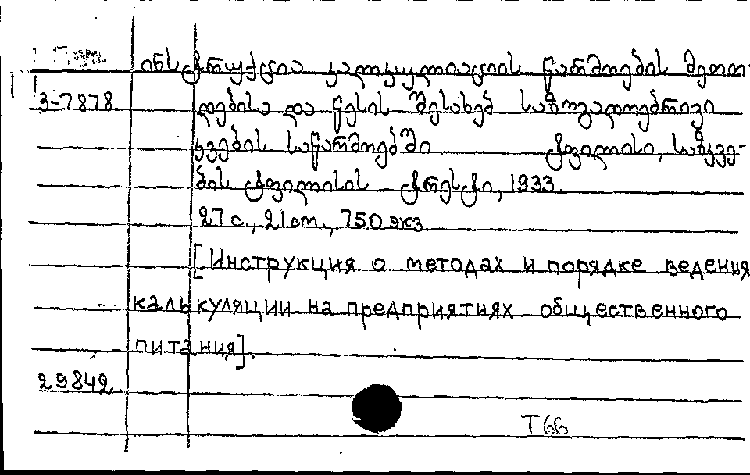 ინსტრუქცია კალკულიაციის წარმოების მეთო-
3-7878 დებისა და წესის შესახებ საზოგადოებრივი
კვების საწარმოებში ტფილისი, სახკვე-
ბის ტფილისის ტრესტი, 1933.
27 с., 21 cm., 750 экз
[Инструкция о методах и порядке ведения
калькуляции на предприятиях общественного
питания].
29842
Т66